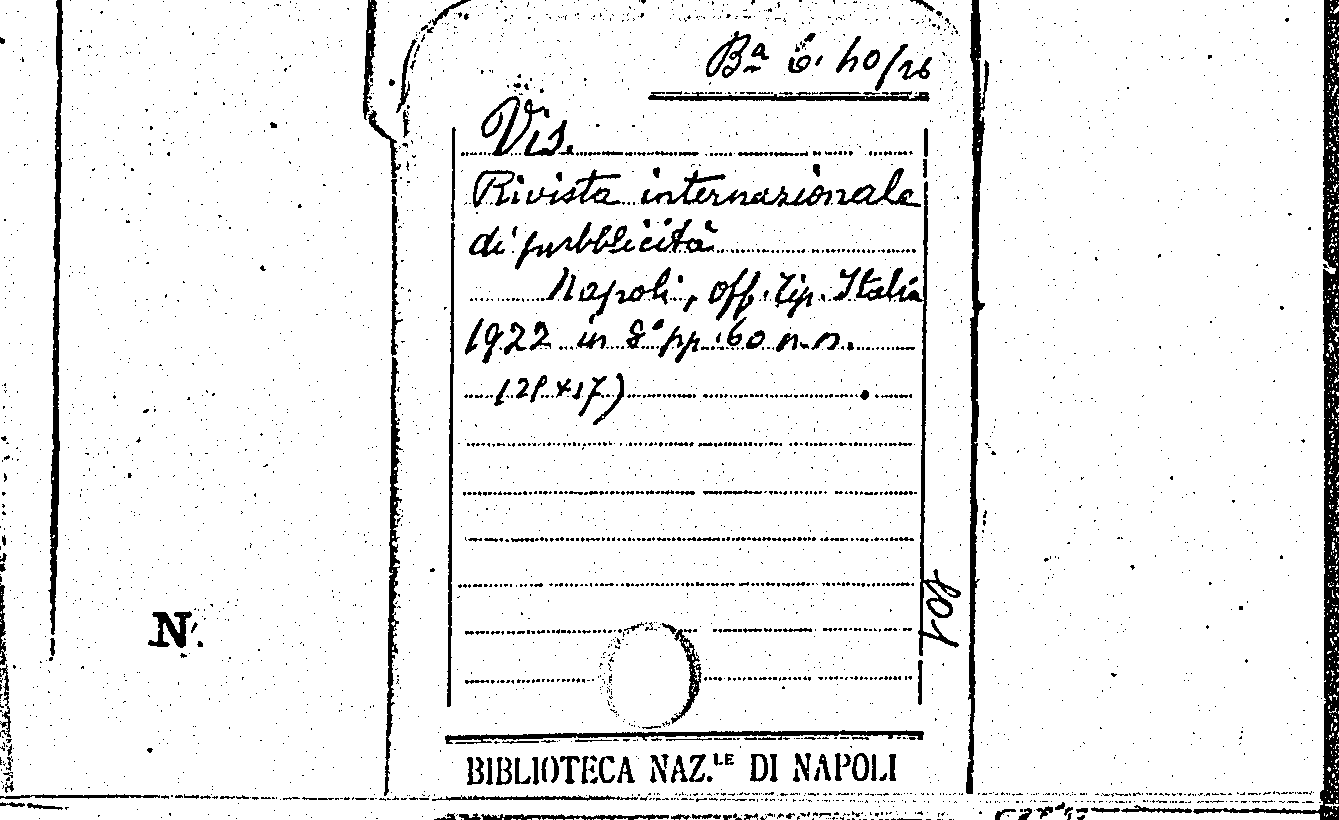 Bª 6. 40/26
Vis.
Rivista internazionale
di pubblicità
Napoli, off. tip. Italia
1922 in 8° pp. 60 n.n.
(28x17)
801
N.
BIBLIOTECA NAZ.LE DI NAPOLI